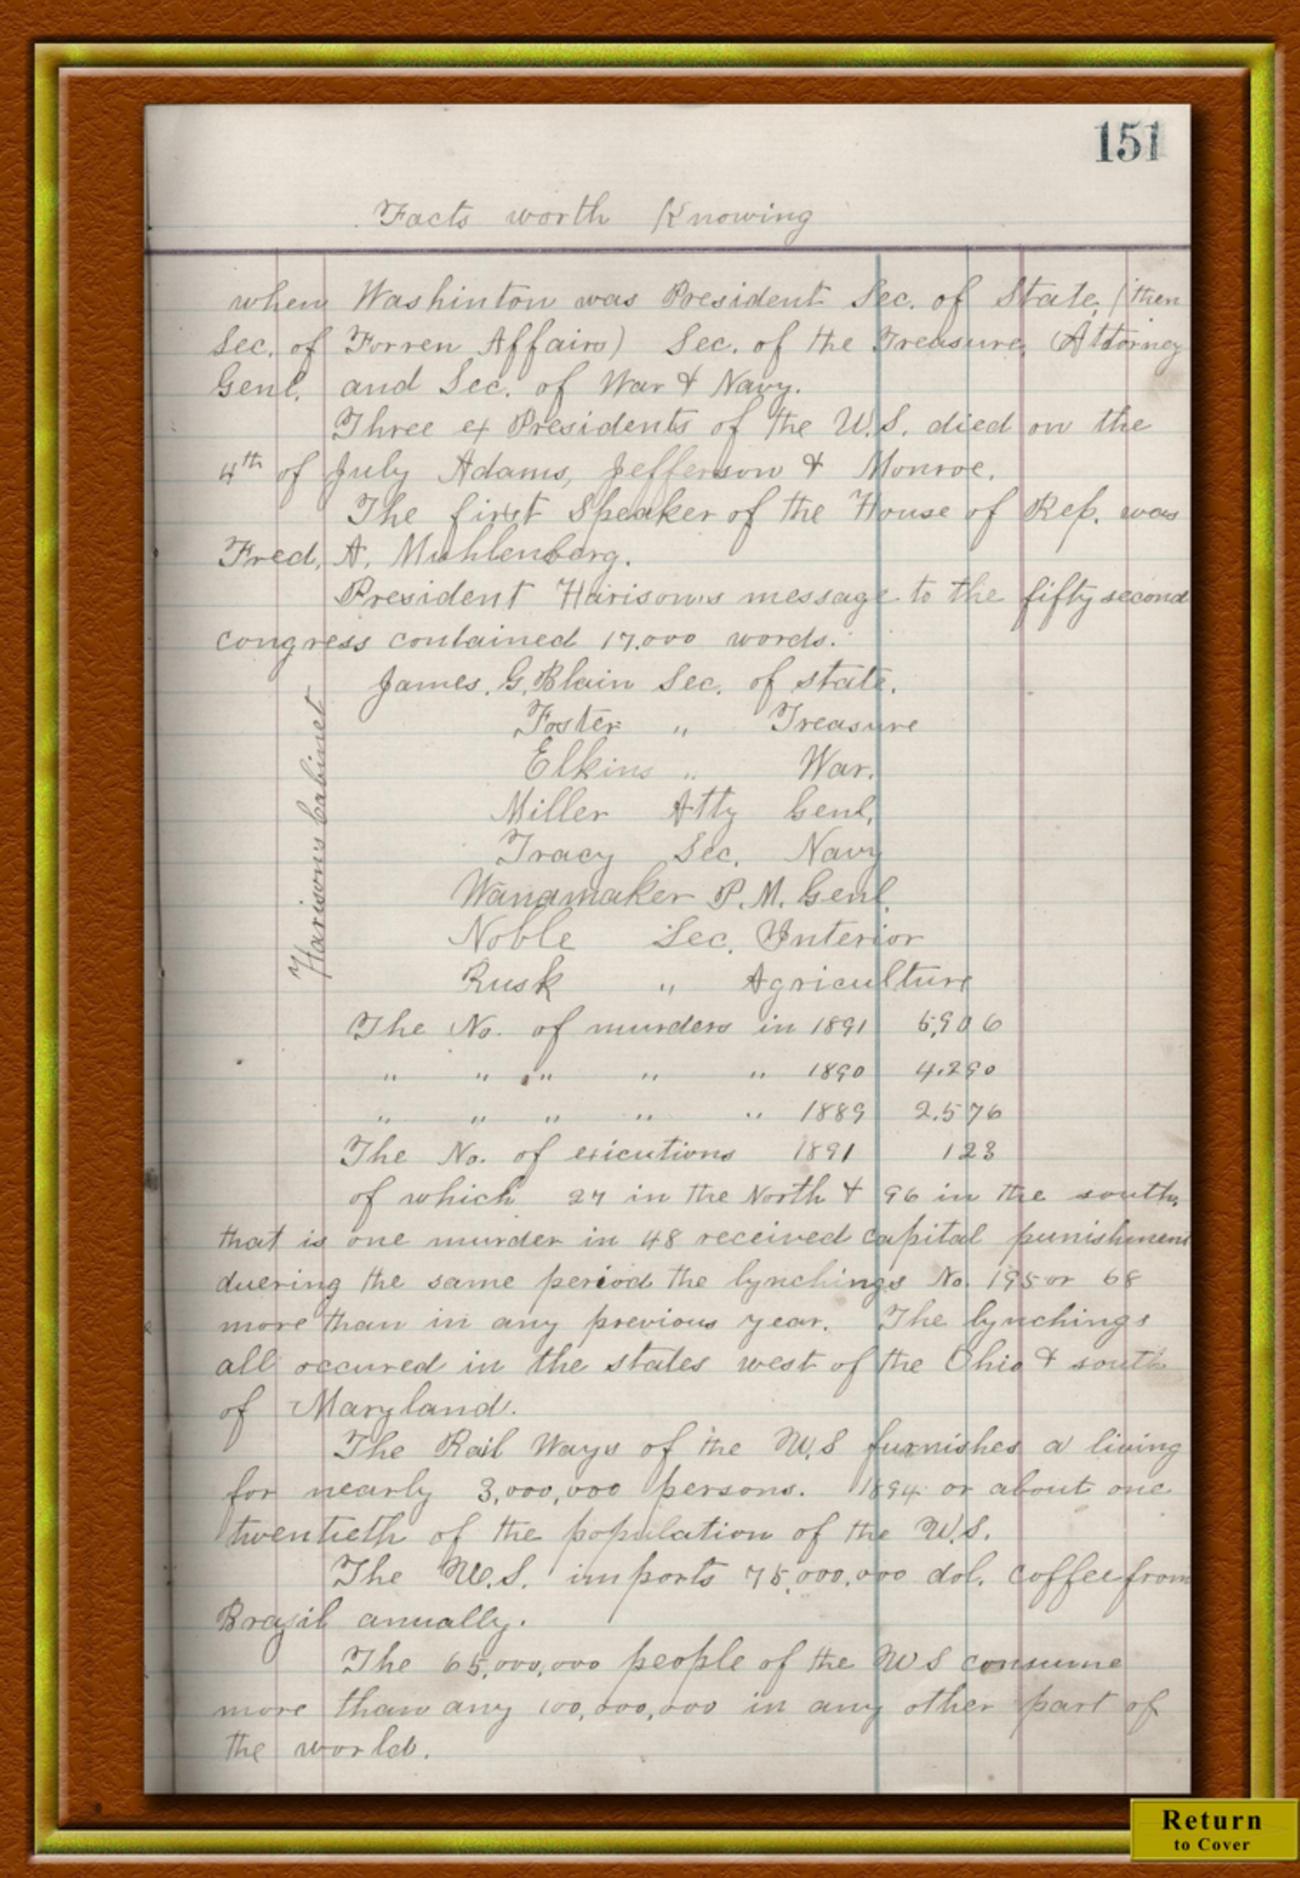 151
Facts worth Knowing
when Washinton was President Sec. of State, (then
Sec. of Forren Affairs) Sec. of the Treasure, (Attorney
Genl. and Sec. of War & Navy.
Three ex Presidents of the U.S. died on the
4th of July Adams, Jefferson & Monroe.
The first Speaker of the House of Rep. was
Fred, A. Muhlenberg.
President Harison's message to the fifty second
congress contained 17.000 words.
Harison's Cabinet
James. G. Blain Sec. of state.
Foster " Treasure
Elkins " War.
Miller Atty Genl,
Tracy Sec. Navy
Wanamaker P.M. Genl.
Noble Sec. Interior
Rusk " Agriculture
The No. of murders in 1891 5,906
" " " " " 1890 4.290
" " " " " 1889 2.576
The No. of exicutions 1891 123
of which 27 in the North & 96 in the south,
that is one murder in 48 received capital punishment
duering the same period the lynchings No. 195 or 68
more than in any previous year. The lynchings
all occured in the states west of the Ohio & south
of Maryland.
The Rail Ways of the U.S furnishes a living
for nearly 3,000,000 persons. 1894 or about one
twentieth of the population of the U.S.
The U.S. imports 75,000,000 dol. coffee from
Brazil anually.
The 65,000,000 people of the U S consume
more than any 100,000,000 in any other part of
the world.
Return
to Cover